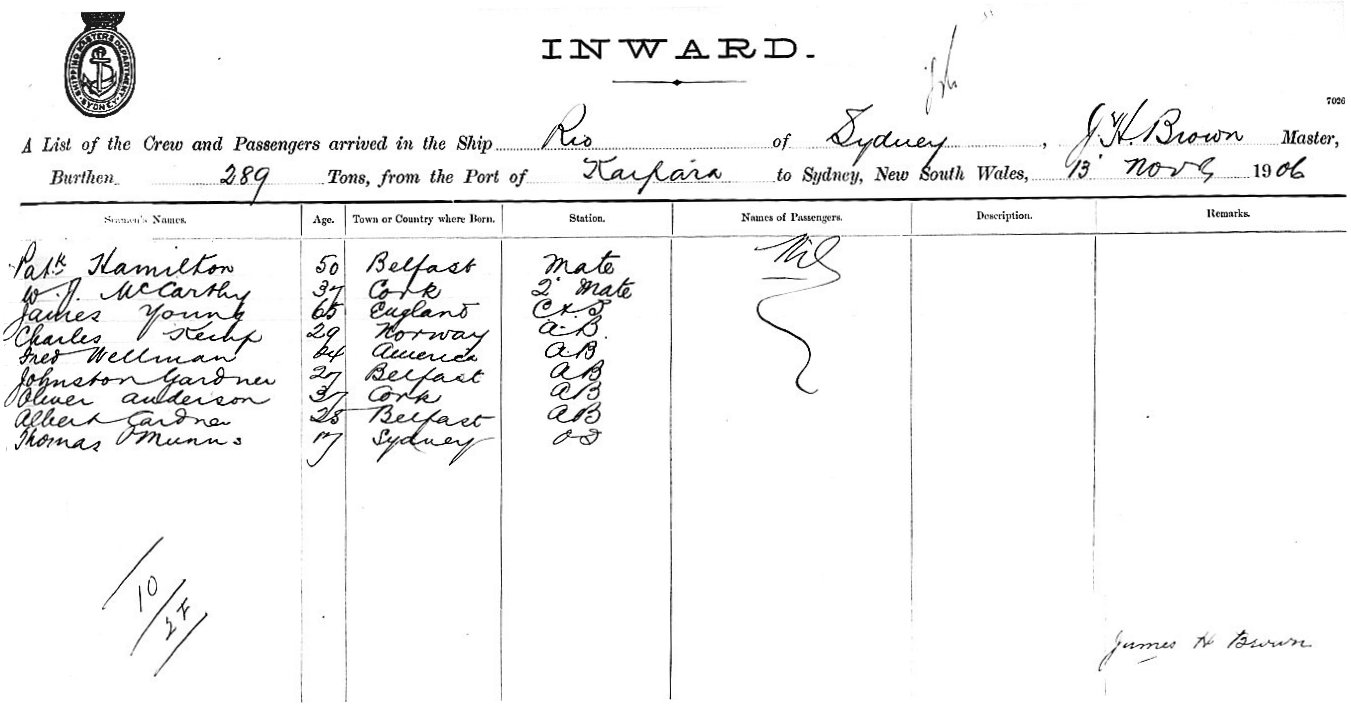 SHIPPING MASTER'S DEPARTMENT SYDNEY
INWARD.
7026
A List of the Crew and Passengers arrived in the Ship Rio of Sydney, J. H. Brown Master,
Burthen 289 Tons, from the Port of Kaipara to Sydney, New South Wales, 13 Nov 1906
Seamen's Names. Age. Town or Country where Born. Station. Names of Passengers. Description. Remarks.
Patk Hamilton 50 Belfast Mate Nil
W. J. McCarthy 37 Cork 2 Mate
James Young 65 England C & S
Charles Kemp 29 Norway A.B.
Fred Wellman 24 America AB
Johnston Gardner 27 Belfast AB
Oliver Anderson 37 Cork AB
Albert Gardner 25 Belfast AB
Thomas Munns 17 Sydney OS
10
2F
James H Brown